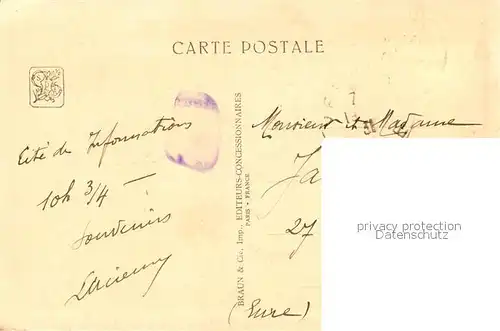 CARTE POSTALE
Cité des Informations
10h 3/4 —
Souvenirs
BRAUN & Cie, Imp., EDITEURS-CONCESSIONNAIRES
PARIS - FRANCE
Monsieur et Madame
Ja
27
(Eure)
privacy protection
Datenschutz